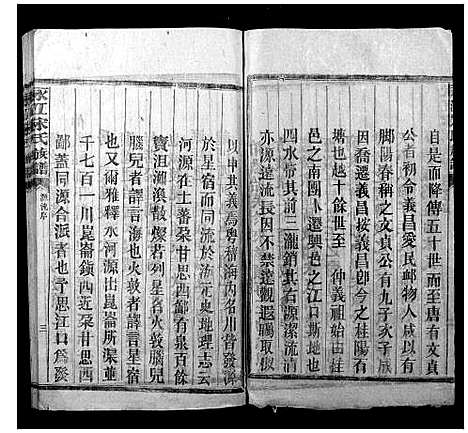 自是而降傳五十世而至唐有文貞
公者初令義昌愛民邮物人咸以有
脚陽春稱之文貞公有九子永子咸
因喬遷義昌按義昌卽今之桂陽有
塘也越十餘世至 仲義祖始由
邑之南團卜遷興邑之江口斯地也
四水帶其前二瀧銷其右源潔流清
亦源遠流長因不禁遠觀遐矚取攷
以申其義焉粤稽海内名川皆發源
於星宿而同流於 元史地理志云
河源在土蕃朶甘思西鄙有泉百餘
寶沮洳渙散燦若列星名火敦腦兒
腦兒者譯言海也火敦者譯言星宿
也又云爾雅釋水河源出崑崙所渠并
千七百一川崑崙鎮西近朶甘思西
鄙蓋同源合派者也予思江口爲發
宋氏族譜
源流序
三